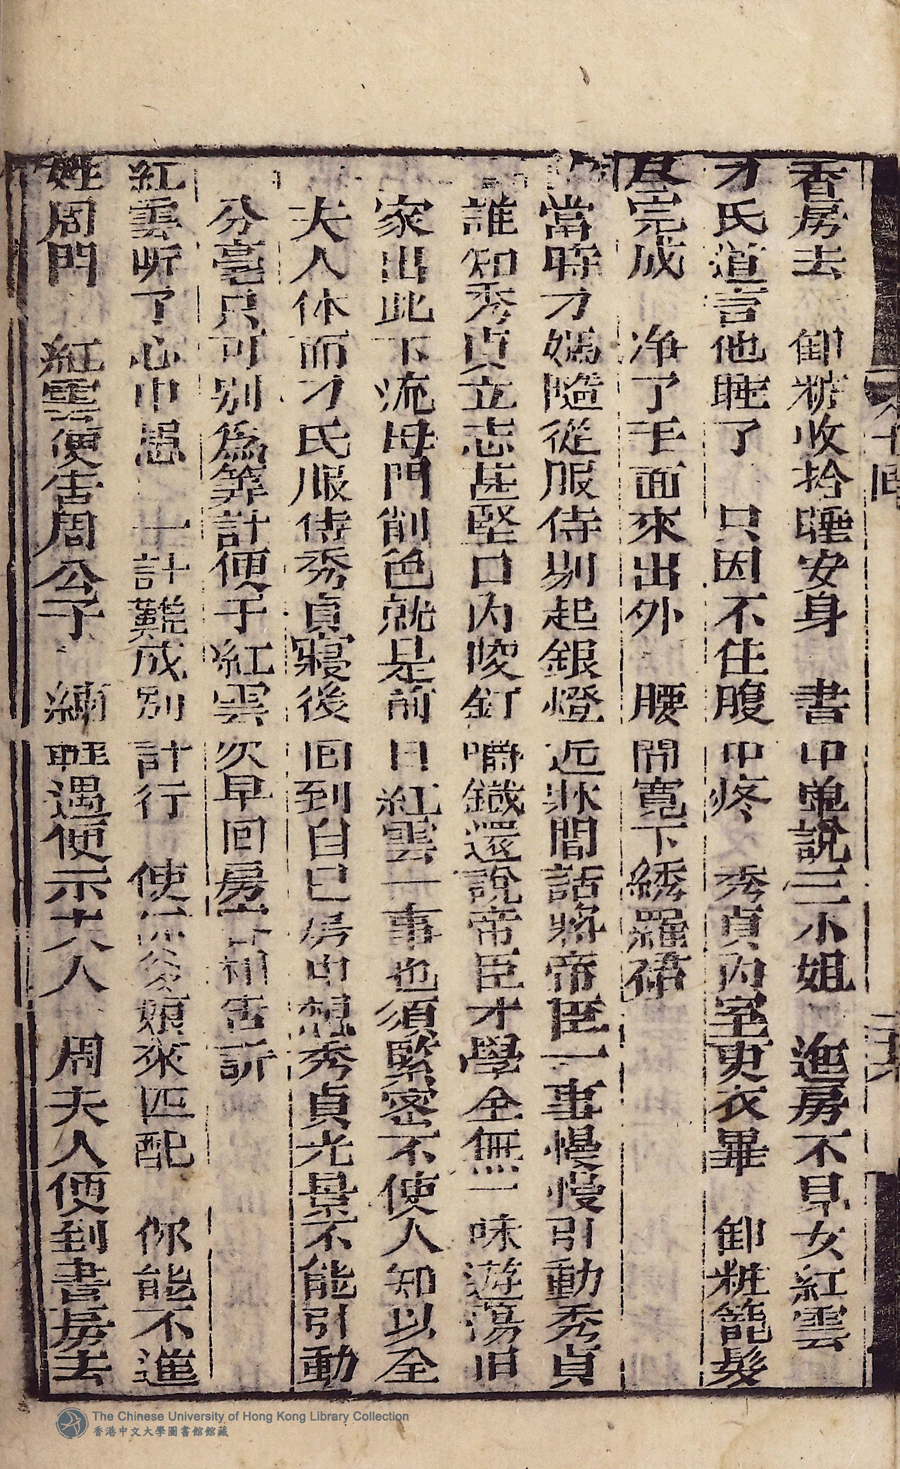 香房去　卸粧收拾睡安身　書中單說三小姐　進房不見女紅雲
才氏道言他睡了　只因不住腹中疼　秀貞內室更衣畢　卸粧籠髮
完成　净了手面來出外　腰間寬下綉羅裙
當時才媽隨從服侍剔起銀燈近牀間話將帝臣一事慢慢引動秀貞
誰知秀貞立志甚堅口內咬釘嚼鐵還說帝臣才學全無一味遊蕩旧
家出此下流母門削色就是前日紅雲一事也須緊密不使人知以全
夫人体面才氏服侍秀貞寢後回到自己房中想秀貞光景不能引動
分毫只可別為筭計便于紅雲次早回房
紅雲听了心中愚　一計難成別計行　使娘來匹配　你能不進
姓周門　紅雲便害周公子　遇便示夫人　周夫人便到書房去
The Chinese University of Hong Kong Library Collection
香港中文大學圖書館館藏